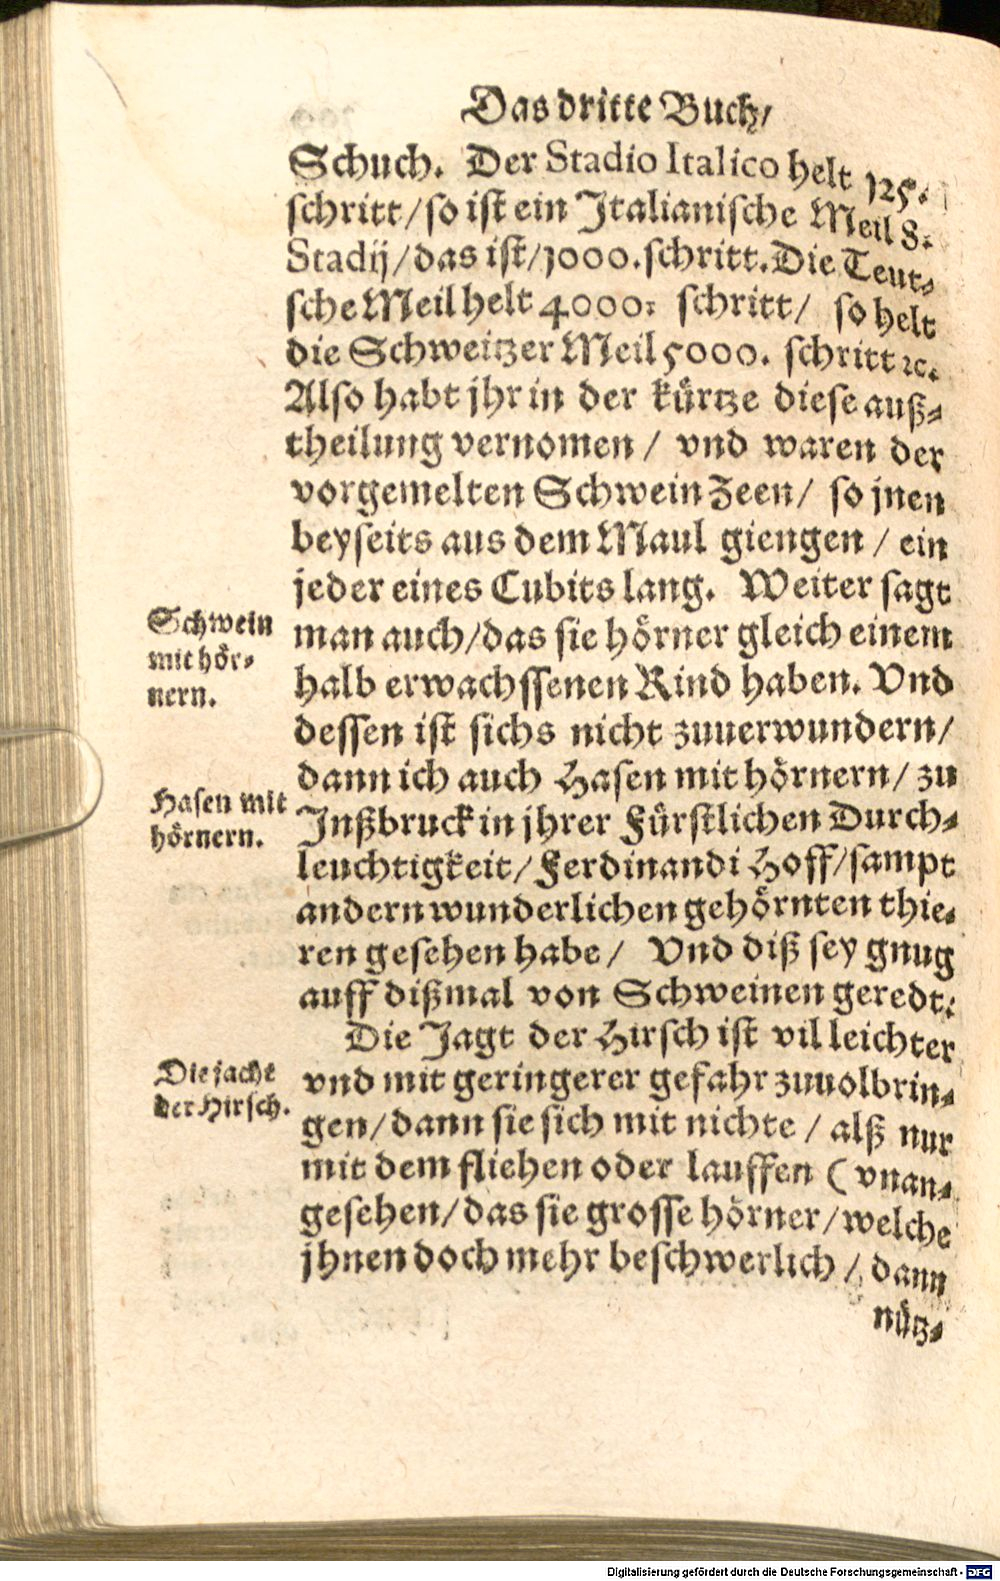 Das dritte Buch/
Schuch. Der Stadio Italico helt 125.
schritt/so ist ein Italianische Meil 8.
Stadij/das ist/1000.schritt.Die Teut⸗
sche Meil helt 4000. schritt/ so helt
die Schweitzer Meil 5000. schritt ꝛc.
Also habt jhr in der kürtze diese auß⸗
theilung vernomen / vnd waren der
vorgemelten Schwein Zeen/ so jnen
beyseits aus dem Maul giengen / ein
jeder eines Cubits lang. Weiter sagt
Schwein
mit hör⸗
nern.
man auch/das sie hörner gleich einem
halb erwachssenen Rind haben. Vnd
dessen ist sichs nicht zuuerwundern/
dann ich auch Hasen mit hörnern/ zu
Hasen mit
hörnern.
Inßbruck in jhrer Fürstlichen Durch⸗
leuchtigkeit/Ferdinandi Hoff/sampt
andern wunderlichen gehörnten thie⸗
ren gesehen habe/ Vnd diß sey gnug
auff dißmal von Schweinen geredt.
Die Jagt der Hirsch ist vil leichter
Die jacht
der Hirsch.
vnd mit geringerer gefahr zuuolbrin⸗
gen/dann sie sich mit nichte / alß nur
mit dem fliehen oder lauffen ( vnan⸗
gesehen/das sie grosse hörner/welche
jhnen doch mehr beschwerlich / dann
nütz⸗
Digitalisierung gefördert durch die Deutsche Forschungsgemeinschaft - DFG